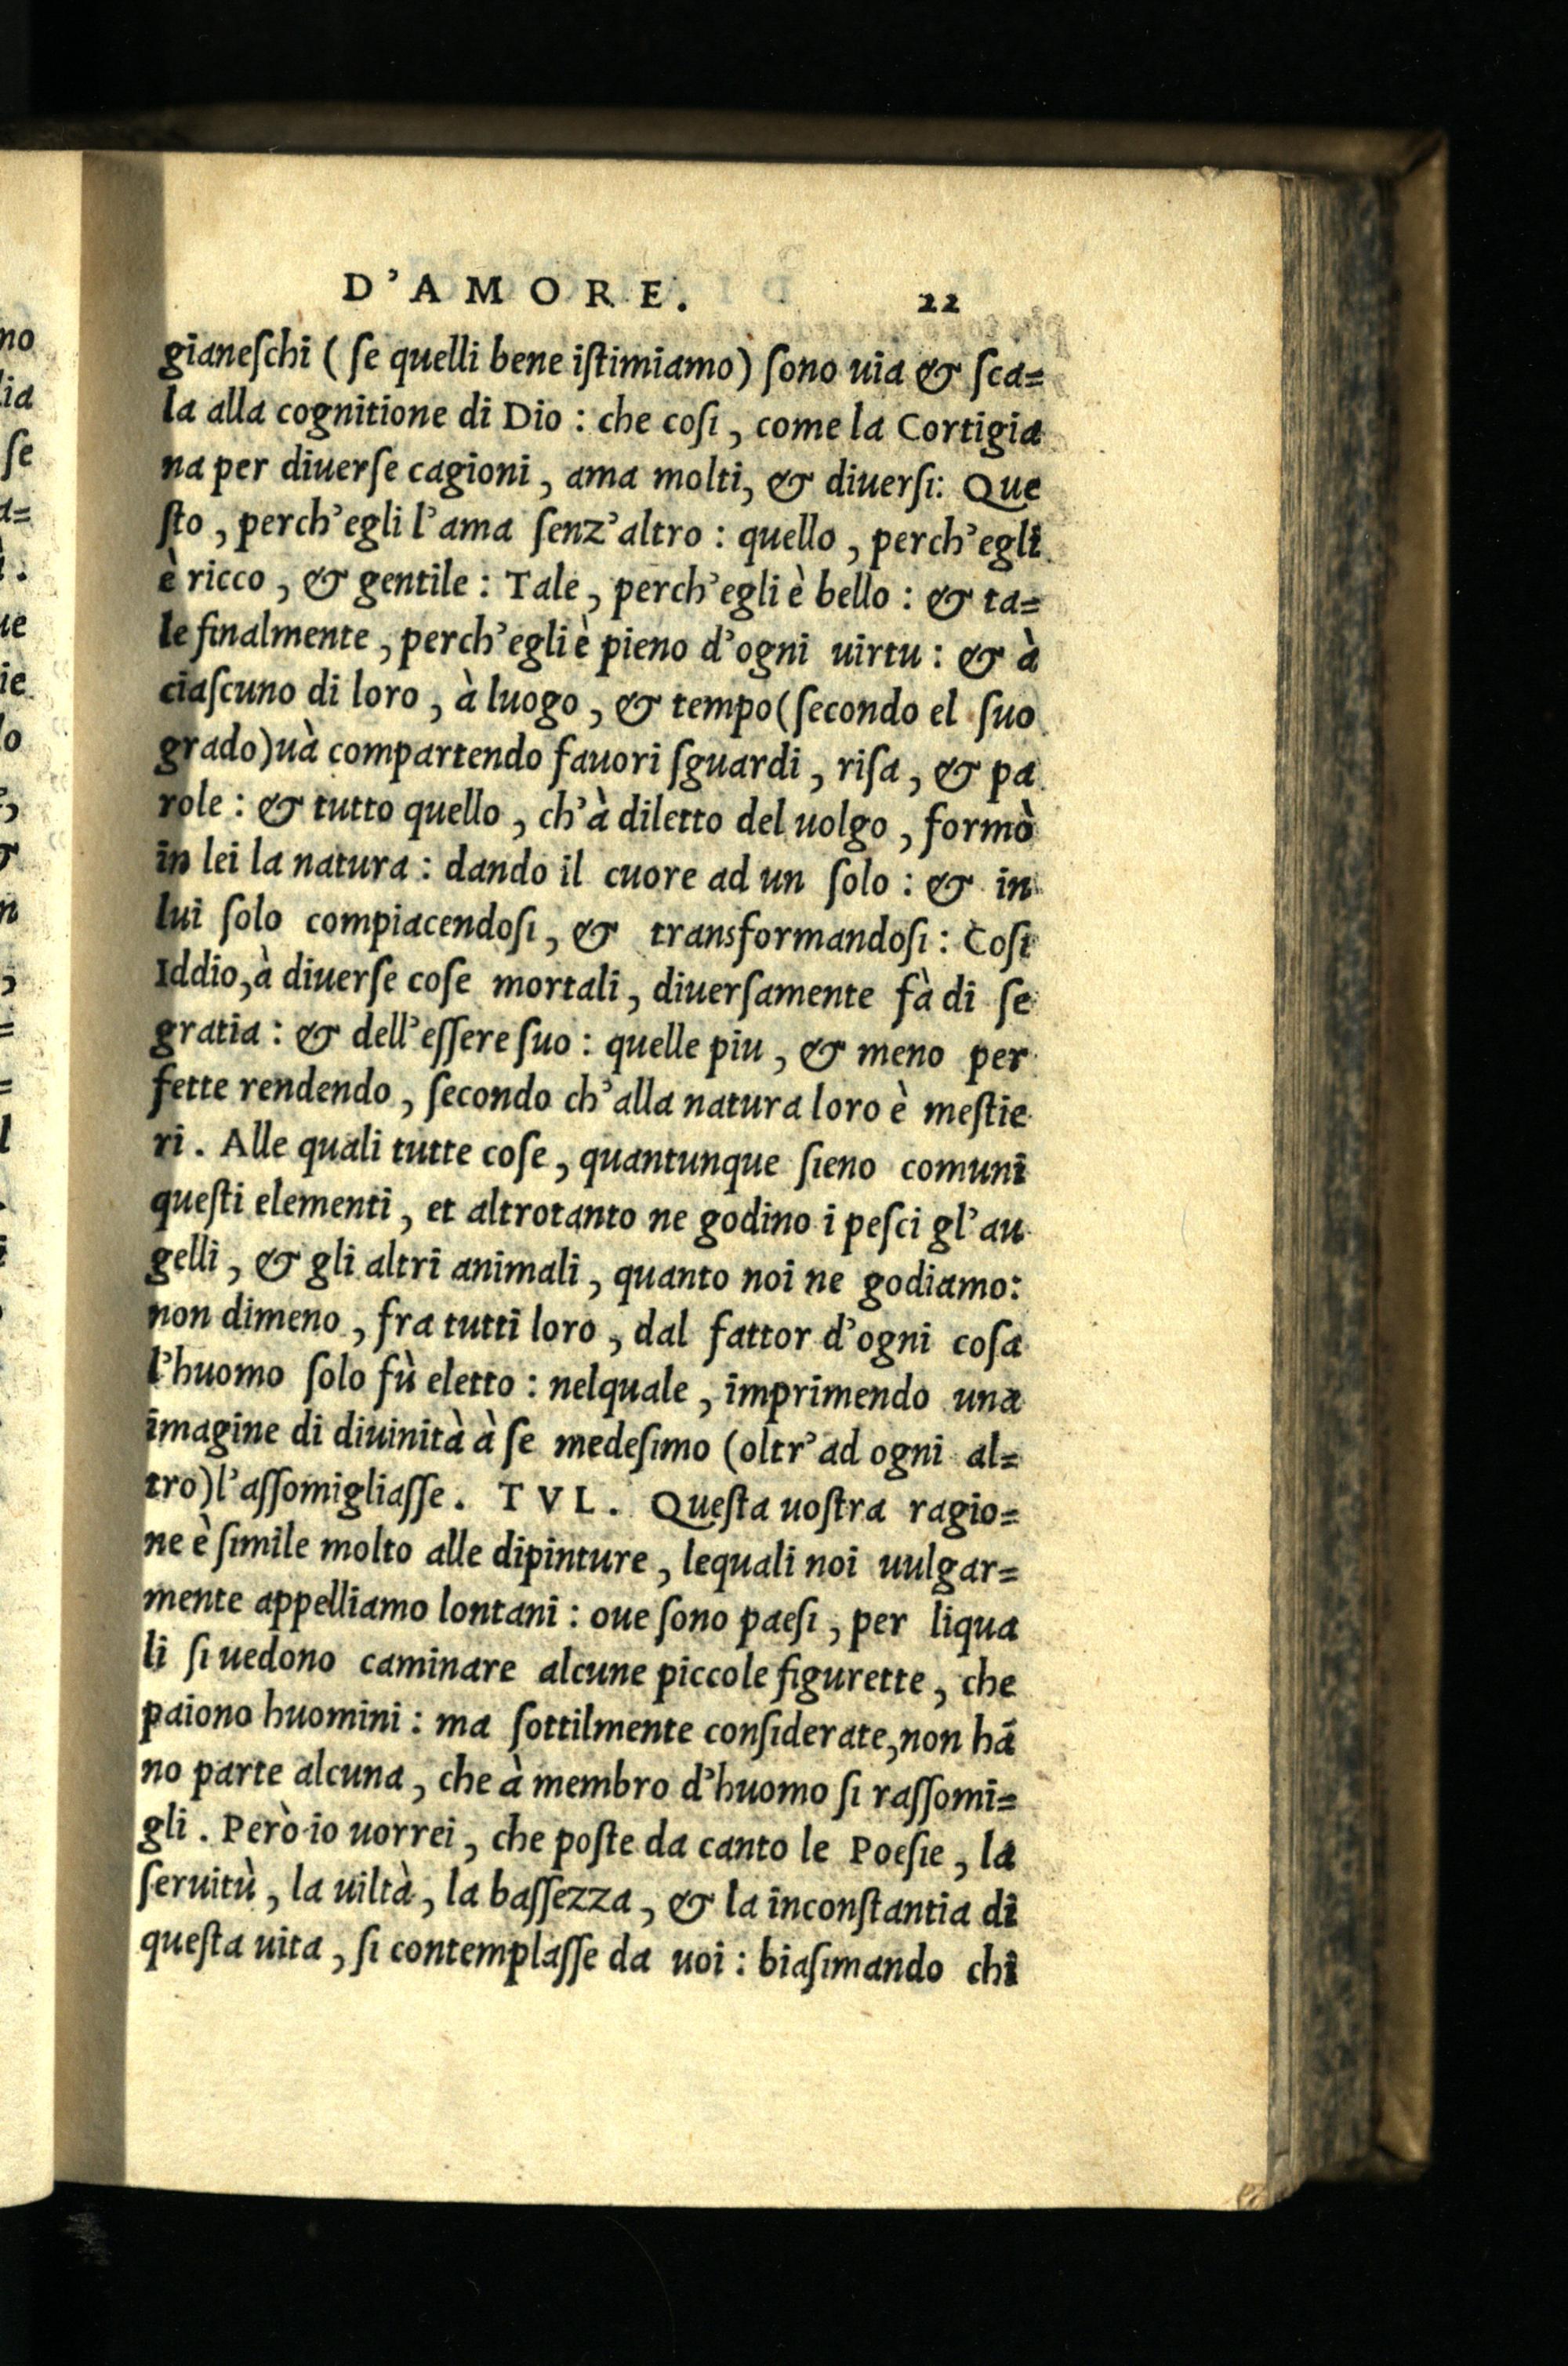 D'AMORE. 22
gianeſchi (ſe quelli bene iſtimiamo) ſono uia & ſca=
la alla cognitione di Dio : che coſi, come la Cortigia
na per diuerſe cagioni, ama molti, & diuerſi: Que
ſto, perch'egli l'ama ſenz'altro : quello, perch'egli
è ricco, & gentile : Tale, perch'egli è bello : & ta=
le finalmente, perch'egli è pieno d'ogni uirtu : & à
ciaſcuno di loro, à luogo, & tempo (ſecondo el ſuo
grado) uà compartendo fauori ſguardi, riſa, & pa
role : & tutto quello, ch'à diletto del uolgo, formò
in lei la natura : dando il cuore ad un ſolo : & in
lui ſolo compiacendoſi, & transformandoſi : Coſi
Iddio, à diuerſe coſe mortali, diuerſamente fà di ſe
gratia : & dell'eſſere ſuo : quelle piu, & meno per
fette rendendo, ſecondo ch'alla natura loro è meſtie
ri. Alle quali tutte coſe, quantunque ſieno comuni
queſti elementi, et altrotanto ne godino i peſci gl'au
gelli, & gli altri animali, quanto noi ne godiamo:
non dimeno, fra tutti loro, dal fattor d'ogni coſa
l'huomo ſolo fù eletto : nelquale, imprimendo una
imagine di diuinità à ſe medeſimo (oltr'ad ogni al=
tro) l'aſſomigliaſſe. TVL. Queſta uoſtra ragio=
ne è ſimile molto alle dipinture, lequali noi uulgar=
mente appelliamo lontani : oue ſono paeſi, per liqua
li ſi uedono caminare alcune piccole figurette, che
paiono huomini : ma ſottilmente conſiderate, non hā
no parte alcuna, che à membro d'huomo ſi raſſomi=
gli. Però io uorrei, che poſte da canto le Poeſie, la
ſeruitù, la uiltà, la baſſezza, & la inconſtantia di
queſta uita, ſi contemplaſſe da uoi : biaſimando chi